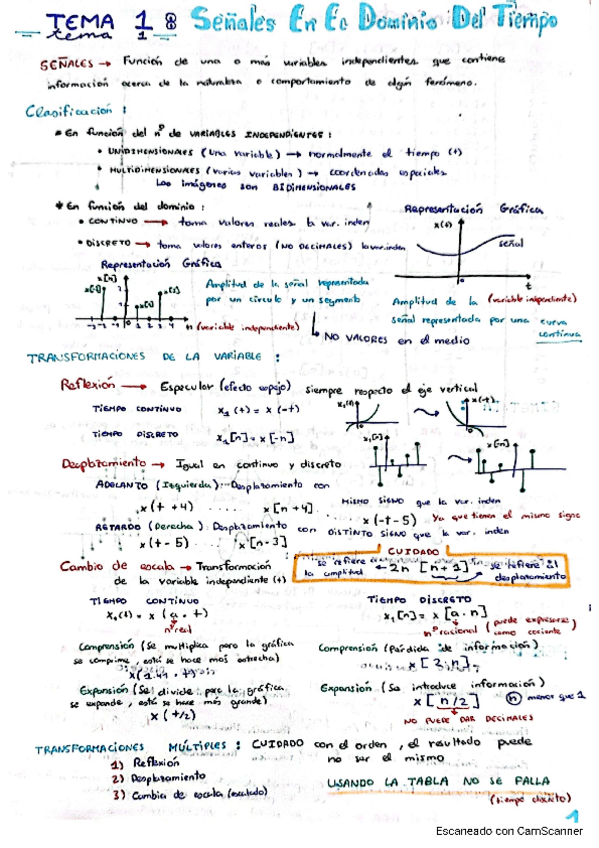 TEMA 1 : Señales En El Dominio Del Tiempo
tema 1
SEÑALES → Función de una o más variables independientes que contiene
información acerca de la naturaleza o comportamiento de algún fenómeno.
Clasificación :
* En función del nº de VARIABLES INDEPENDIENTES :
• UNIDIMENSIONALES (una variable) → normalmente el tiempo (t)
• MULTIDIMENSIONALES (varias variables) → coordenadas espaciales
Las imágenes son BIDIMENSIONALES
* En función del dominio :
• CONTINUO → toma valores reales la var. inden
• DISCRETO → toma valores enteros (NO DECIMALES) la var.inden
Representación Gráfica
x(t)
señal
t
(variable independiente)
Amplitud de la
señal representada por una curva
continua
Representación Gráfica
x[n]
-3 -2 -1 0 1 2 3 4 n (variable independiente)
Amplitud de la señal representada
por un círculo y un segmento
NO VALORES en el medio
TRANSFORMACIONES DE LA VARIABLE :
Reflexión → Especular (efecto espejo) siempre respecto el eje vertical
TIEMPO CONTINUO x₁(t) = x(-t)
x₁(t) x(-t)
TIEMPO DISCRETO x₁[n] = x[-n]
x₁[n] x[n]
Desplazamiento → Igual en continuo y discreto
ADELANTO (Izquierda) : Desplazamiento con MISMO SIGNO que la var. inden
x(t + 4) x[n + 4] x(-t - 5) Ya que tienen el mismo signo
RETARDO (Derecha) : Desplazamiento con DISTINTO SIGNO que la var. inden
x(t - 5) x[n - 3]
CUIDADO
se refiere la amplitud ← 2n [n + 1] se refiere al desplazamiento
Cambio de escala → Transformación
de la variable independiente (t)
TIEMPO CONTINUO
x₁(t) = x(a · t)
nº real
Comprensión (Se multiplica pero la gráfica
se comprime, está se hace más estrecha)
Expansión (Se divide pero la gráfica
se expande, está se hace más grande)
x(t/2)
TIEMPO DISCRETO
x₁[n] = x[a · n]
nº racional (puede expresarse como cociente)
Comprensión (Pérdida de información)
x[3·n]
Expansión (Se introduce información)
x[n/2] (n) menor que 1
NO PUEDE DAR DECIMALES
TRANSFORMACIONES MÚLTIPLES : CUIDADO con el orden, el resultado puede
no ser el mismo
1) Reflexión
2) Desplazamiento
3) Cambio de escala (escalado)
USANDO LA TABLA NO SE FALLA
(tiempo discreto)
1
Escaneado con CamScanner